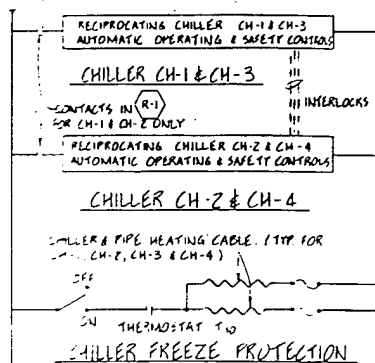 RECIPROCATING CHILLER CH-1 & CH-3
AUTOMATIC OPERATING & SAFETY CONTROLS
CHILLER CH-1 & CH-3
CONTACTS IN R-1
FOR CH-1 & CH-2 ONLY
INTERLOCKS
RECIPROCATING CHILLER CH-2 & CH-4
AUTOMATIC OPERATING & SAFETY CONTROLS
CHILLER CH-2 & CH-4
CHILLER & PIPE HEATING CABLE. (TYP. FOR
CH-2, CH-3 & CH-4)
OFF
ON
THERMOSTAT T10
CHILLER FREEZE PROTECTION